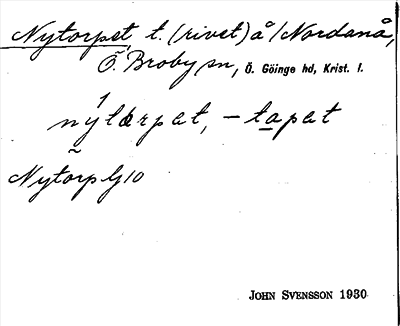 Nytorpet t. (rivet) å /Nordanå,
Ö. Broby sn, Ö. Göinge hd, Krist. l.
nýtærpat, -tapat
~
Nytorp G10
JOHN SVENSSON 1930